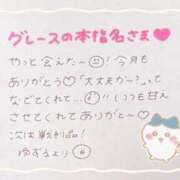 グレースの本指名さま♥
やっと会えたー 今月も
ありがとう♡「大丈夫かー?」って
なでてくれて...!! いつも甘え
させてくれてありがとー♡
次は
ゆずるより